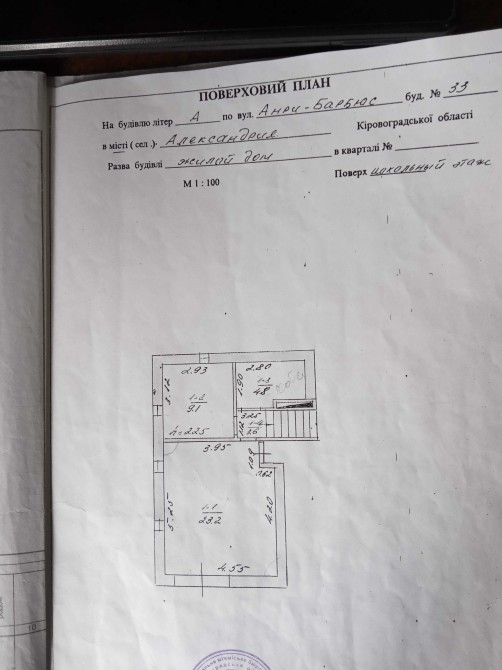 ПОВЕРХОВИЙ ПЛАН
На будівлю літер А по вул. Анри-Барбюс буд. № 33
в місті ( сел .) Александрия Кіровоградської області
Разва будівлі жилай дом в кварталі №
М 1 : 100 Поверх цокольный этаж
2.93 2.80
3.12 1-2 9.1 1.90 1-3 4.8
3.25
h=2.25 1.12 1-4
3.95 1.09
0.62
5.25 1-1 23.2 4.20
4.55
10